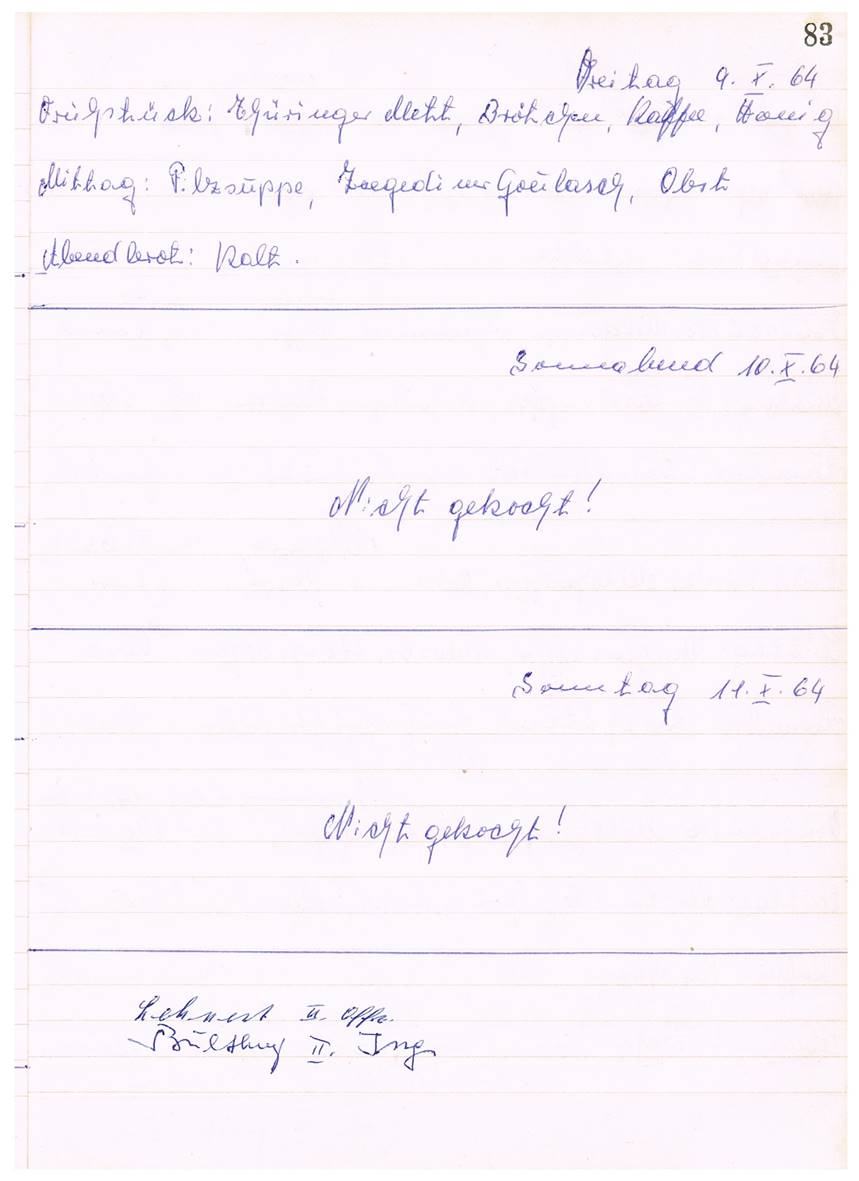 83
Freitag 9. X. 64
Frühstück: Thüringer Mett, Brötchen, Kaffee, Honig
Mittag: Pilzsuppe, Szegediner Goulasch, Obst
Abendbrot: Kalt.
Sonnabend 10. X. 64
Nicht gekocht!
Sonntag 11. X. 64
Nicht gekocht!
Lehnert II. Offz.
II. Ing.